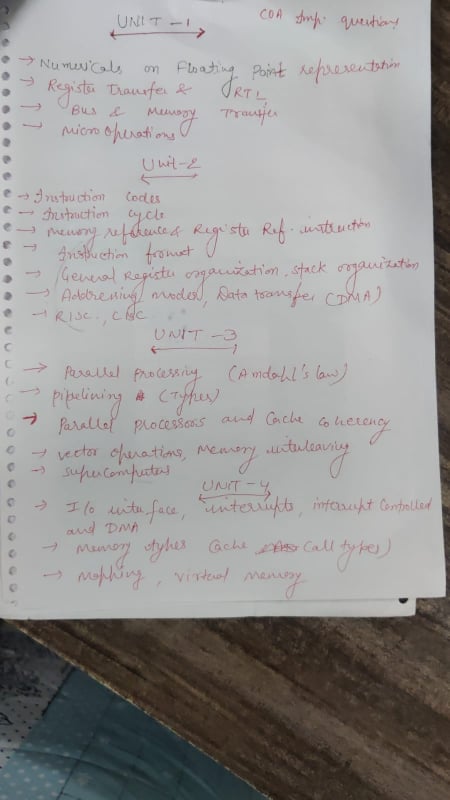 UNIT-1
COA Imp. questions
→ Numericals on Floating Point representation
→ Register Transfer & RTL
→ Bus & Memory Transfer
→ Micro operations
Unit-2
→ Instruction Codes
→ Instruction Cycle
→ Memory reference & Register Ref. instruction
→ Instruction format
→ General Register organization, stack organization
→ Addressing modes, Data transfer (DMA)
→ RISC, CISC
UNIT-3
→ Parallel processing (Amdahl's law)
→ pipelining (Types)
→ Parallel processors and Cache coherency
→ vector operations, Memory interleaving
→ supercomputers
UNIT-4
→ I/o interface, interrupts, interrupt controlled
and DMA
→ Memory types Cache (all types)
→ Mapping, virtual memory